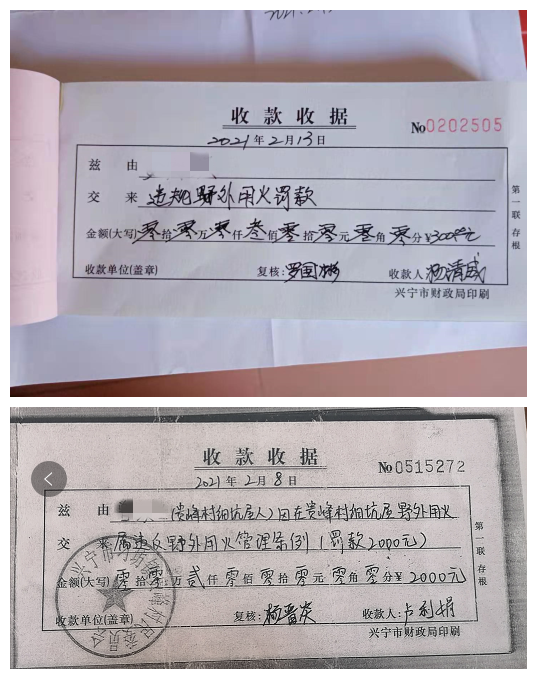 收款收据
No0202505
2021年2月13日
兹 由
交 来 违规野外用火罚款
金额(大写)零拾零万零仟叁佰零拾零元零角零分¥300元
收款单位(盖章) 复核: 罗国彬 收款人:杨清威
兴宁市财政局印刷
第一联 存根
收款收据
No0515272
2021年2月8日
兹 由 (贵峰村细坑屋人)因在贵峰村细坑屋野外用火
交 来 属违反野外用火管理条例(罚款2000元)
金额(大写)零拾零万贰仟零佰零拾零元零角零分¥2000元
收款单位(盖章) 复核: 收款人:
兴宁市财政局印刷
第一联 存根